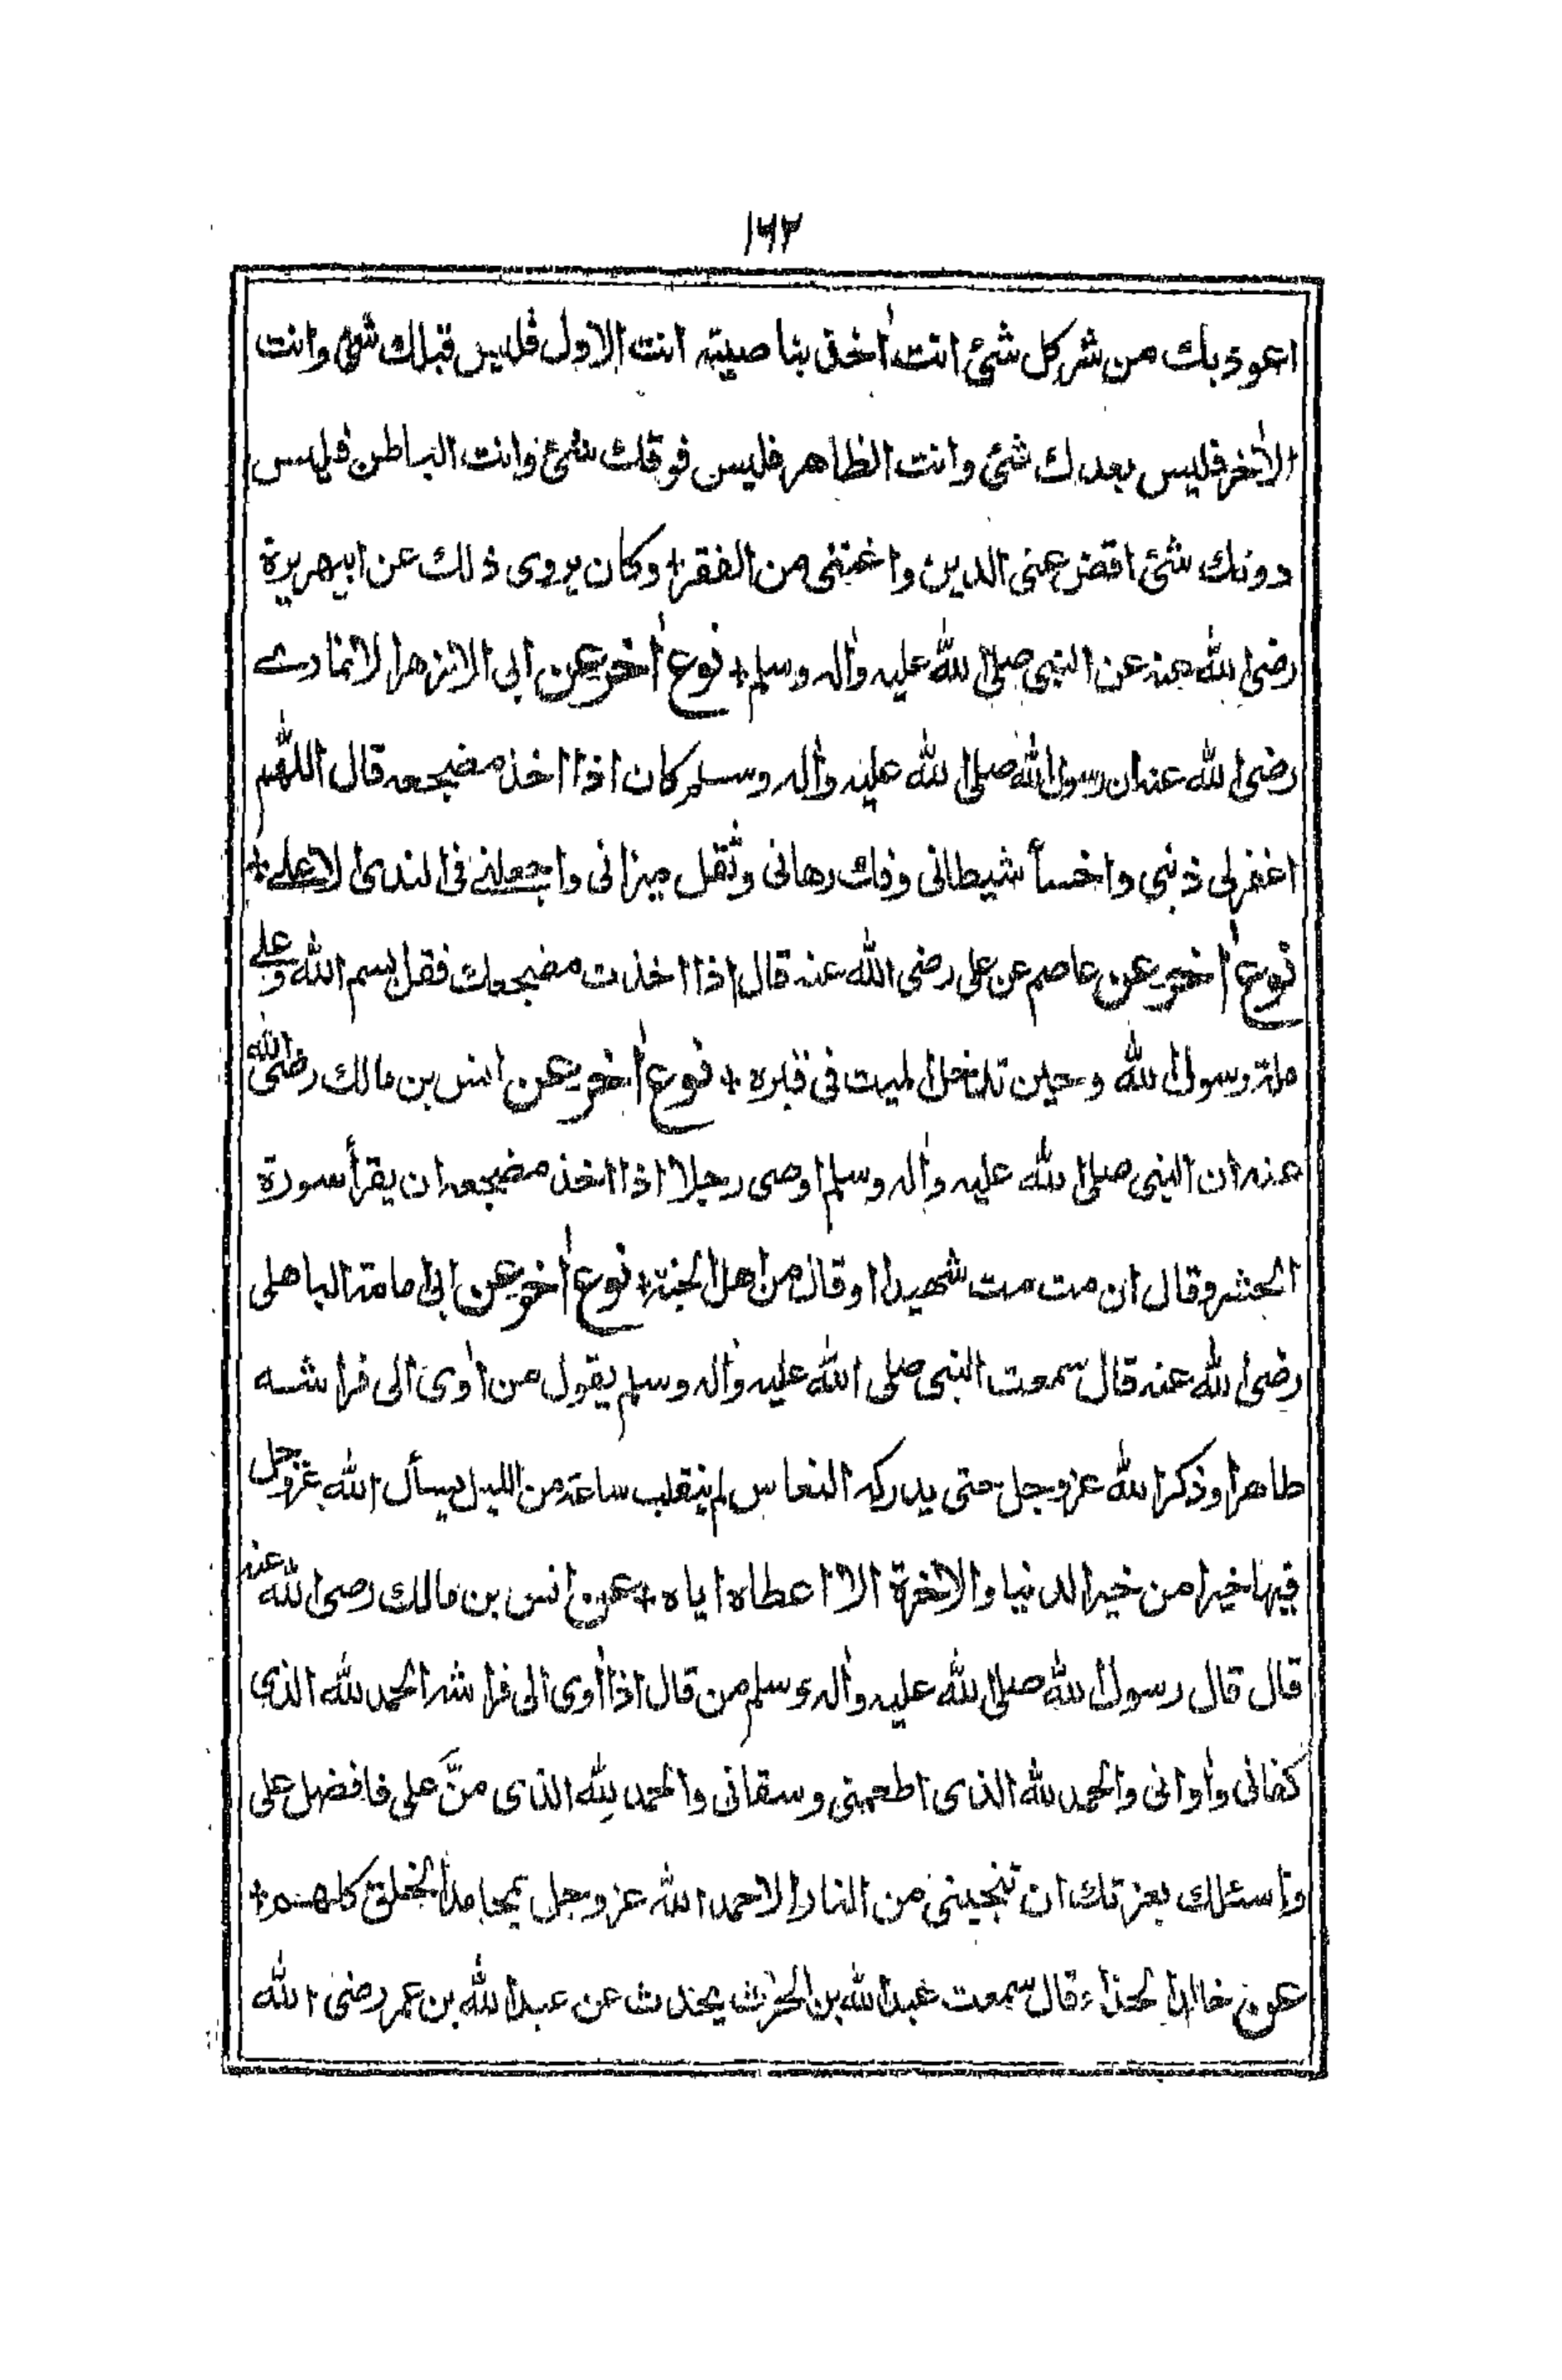 ۱۶۲
اعوذ بك من شر كل شئ انت اٰخذ بناصيته انت الاول فليس قبلك شئ وانت
الاٰخر فليس بعدك شئ وانت الظاهر فليس فوقك شئ وانت الباطن فليس
دونك شئ اقض عنى الدين واغننى من الفقر + وكان يروى ذلك عن ابيهريرة
رضى الله عنه عن النبى صلى الله عليه واٰله وسلم + نوع اٰخر عن ابى الازهر الانمارے
رضى الله عنه ان رسول الله صلى الله عليه واٰله وسلم كان اذا اخذ مضجعه قال اللّٰهم
اغفر لى ذنبى واخسأ شيطانى وفك رهانى وثقل ميزانى واجعلنے فى الندى الاعلے +
نوع اٰخر عن عاصم عن على رضى الله عنه قال اذا اخذت مضجعك فقل بسم الله وعلے
ملة رسول الله وحين تدخل الميت فى قبره + نوع اٰخر عن انس بن مالك رضى الله
عنه ان النبى صلى الله عليه واٰله وسلم اوصى رجلا اذا اخذ مضجعه ان يقرأ سورة
الحشر وقال ان مت مت شهيدا او قال من اهل الجنة + نوع اٰخر عن ابى امامة الباهلى
رضى الله عنه قال سمعت النبى صلى الله عليه واٰله وسلم يقول من اوٰى الى فراشه
طاهرا وذكر الله عز وجل حتى يدركه النعاس لم ينقلب ساعة من الليل يسأل الله عز وجل
فيها خيرا من خير الدنيا والاٰخرة الا اعطاه اياه + عن انس بن مالك رضى الله عنه
قال قال رسول الله صلى الله عليه واٰله وسلم من قال اذا اٰوى الى فراشه الحمد لله الذى
كفانى واٰوانى والحمد لله الذى اطعمنى وسقانى والحمد لِله الذى منَّ على فافضل على
واسئلك بعزتك ان تنجينى من النار الا حمد الله عز وجل بمحامد الخلق كلهم +
عن خالد الحذاء قال سمعت عبد الله بن الحٰرث يحدث عن عبد الله بن عمر رضى الله